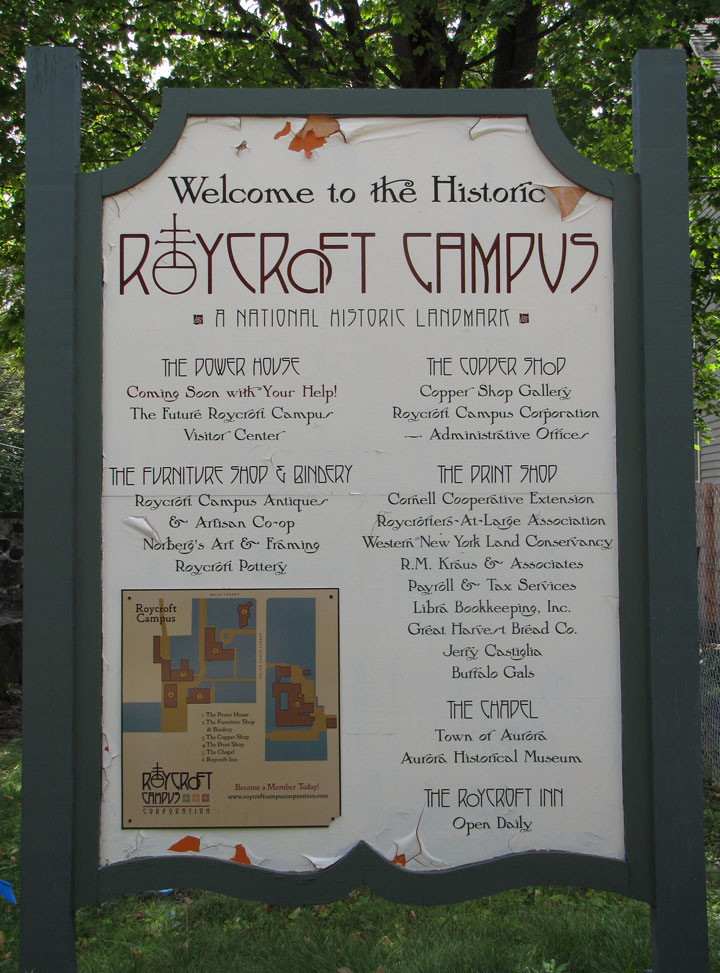 Welcome to the Historic
ROYCROFT CAMPUS
A NATIONAL HISTORIC LANDMARK
THE POWER HOUSE
Coming Soon with Your Help!
The Future Roycroft Campus
Visitor Center
THE FURNITURE SHOP & BINDERY
Roycroft Campus Antiques
& Artisan Co-op
Norberg's Art & Framing
Roycroft Pottery
THE COPPER SHOP
Copper Shop Gallery
Roycroft Campus Corporation
— Administrative Offices
THE PRINT SHOP
Cornell Cooperative Extension
Roycrofters-At-Large Association
Western New York Land Conservancy
R.M. Kraus & Associates
Payroll & Tax Services
Libra Bookkeeping, Inc.
Great Harvest Bread Co.
Jerry Castiglia
Buffalo Gals
THE CHAPEL
Town of Aurora
Aurora Historical Museum
THE ROYCROFT INN
Open Daily
MAIN STREET
Roycroft
Campus
SOUTH GROVE STREET
1 The Power House
2 The Furniture Shop
& Bindery
3 The Copper Shop
4 The Print Shop
5 The Chapel
6 Roycroft Inn
ROYCROFT
CAMPUS
CORPORATION
Become a Member Today!
www.roycroftcampuscorporation.com